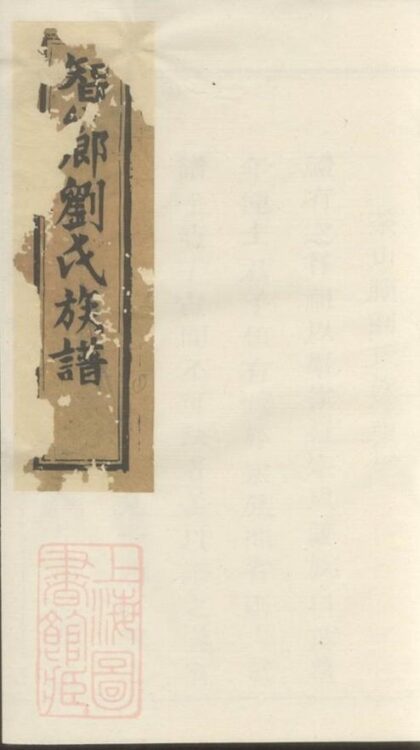 智䣊劉氏族譜
上海圖
書館藏